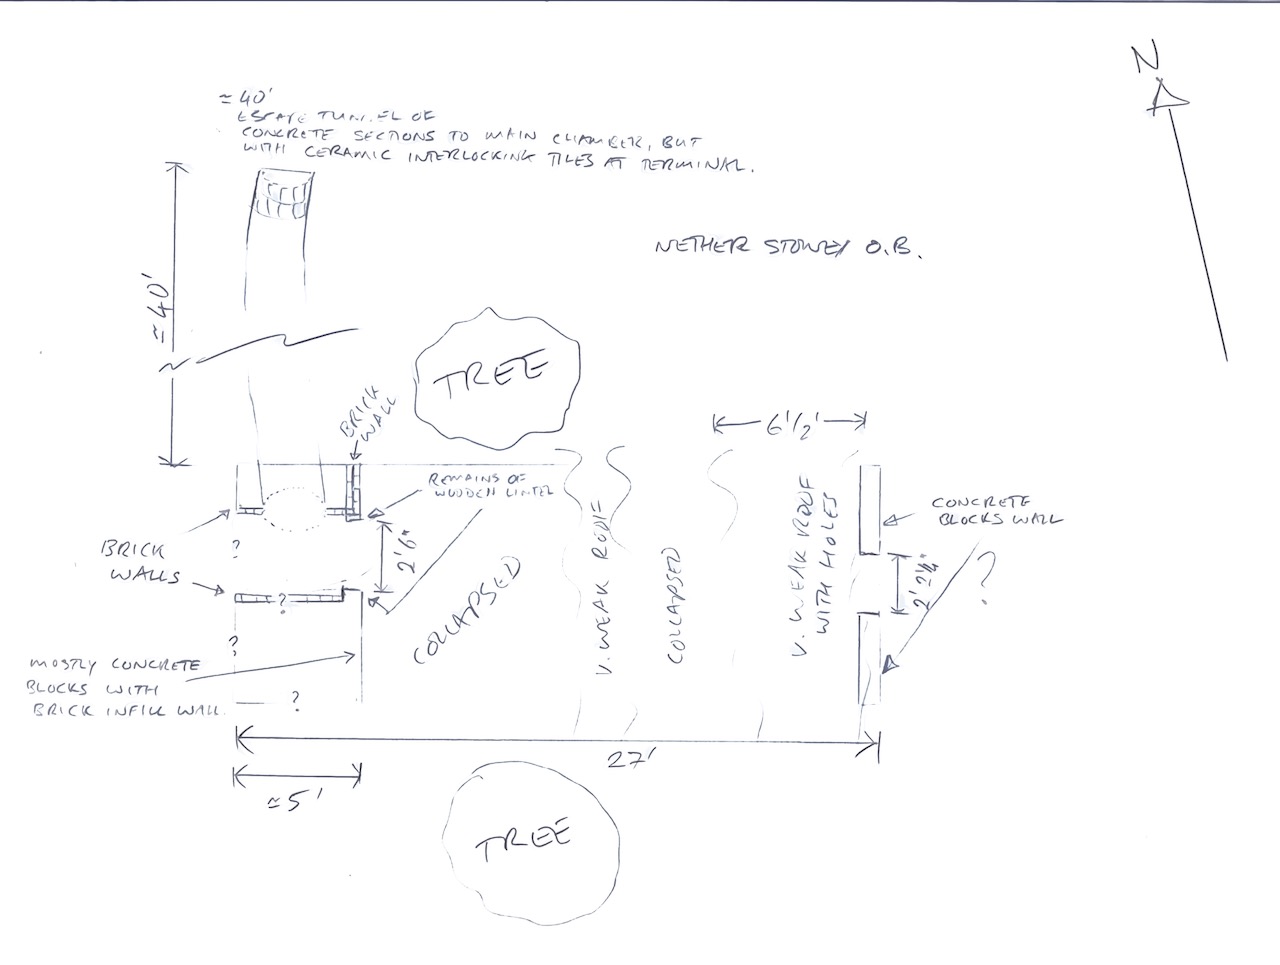 N
≃ 40'
ESCAPE TUNNEL OF
CONCRETE SECTIONS TO MAIN CHAMBER, BUT
WITH CERAMIC INTERLOCKING TILES AT TERMINAL.
NETHER STOWEY O.B.
≃ 40'
TREE
BRICK
WALL
6 1/2'
REMAINS OF
WOODEN LINTEL
CONCRETE
BLOCKS WALL
?
BRICK
WALLS
?
2'6"
COLLAPSED
V. WEAK ROOF
COLLAPSED
V. WEAK ROOF
WITH HOLES
?
?
MOSTLY CONCRETE
BLOCKS WITH
BRICK INFILL WALL.
?
27'
≃ 5'
TREE